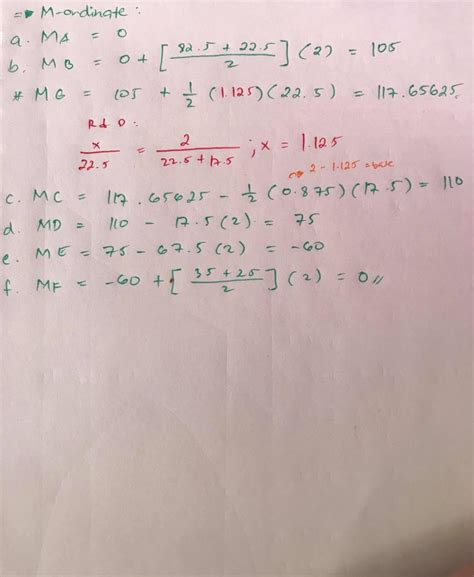 => M-ordinate :
a. MA = 0
b. MB = 0 + [ (82.5 + 22.5) / 2 ] (2) = 105
* MG = 105 + 1/2 (1.125)(22.5) = 117.65625
Rd 0 :
x / 22.5 = 2 / (22.5 + 17.5) ; x = 1.125
2 - 1.125 = 
c. MC = 117.65625 - 1/2 (0.875)(17.5) = 110
d. MD = 110 - 17.5 (2) = 75
e. ME = 75 - 67.5 (2) = -60
f. MF = -60 + [ (35 + 25) / 2 ] (2) = 0 //